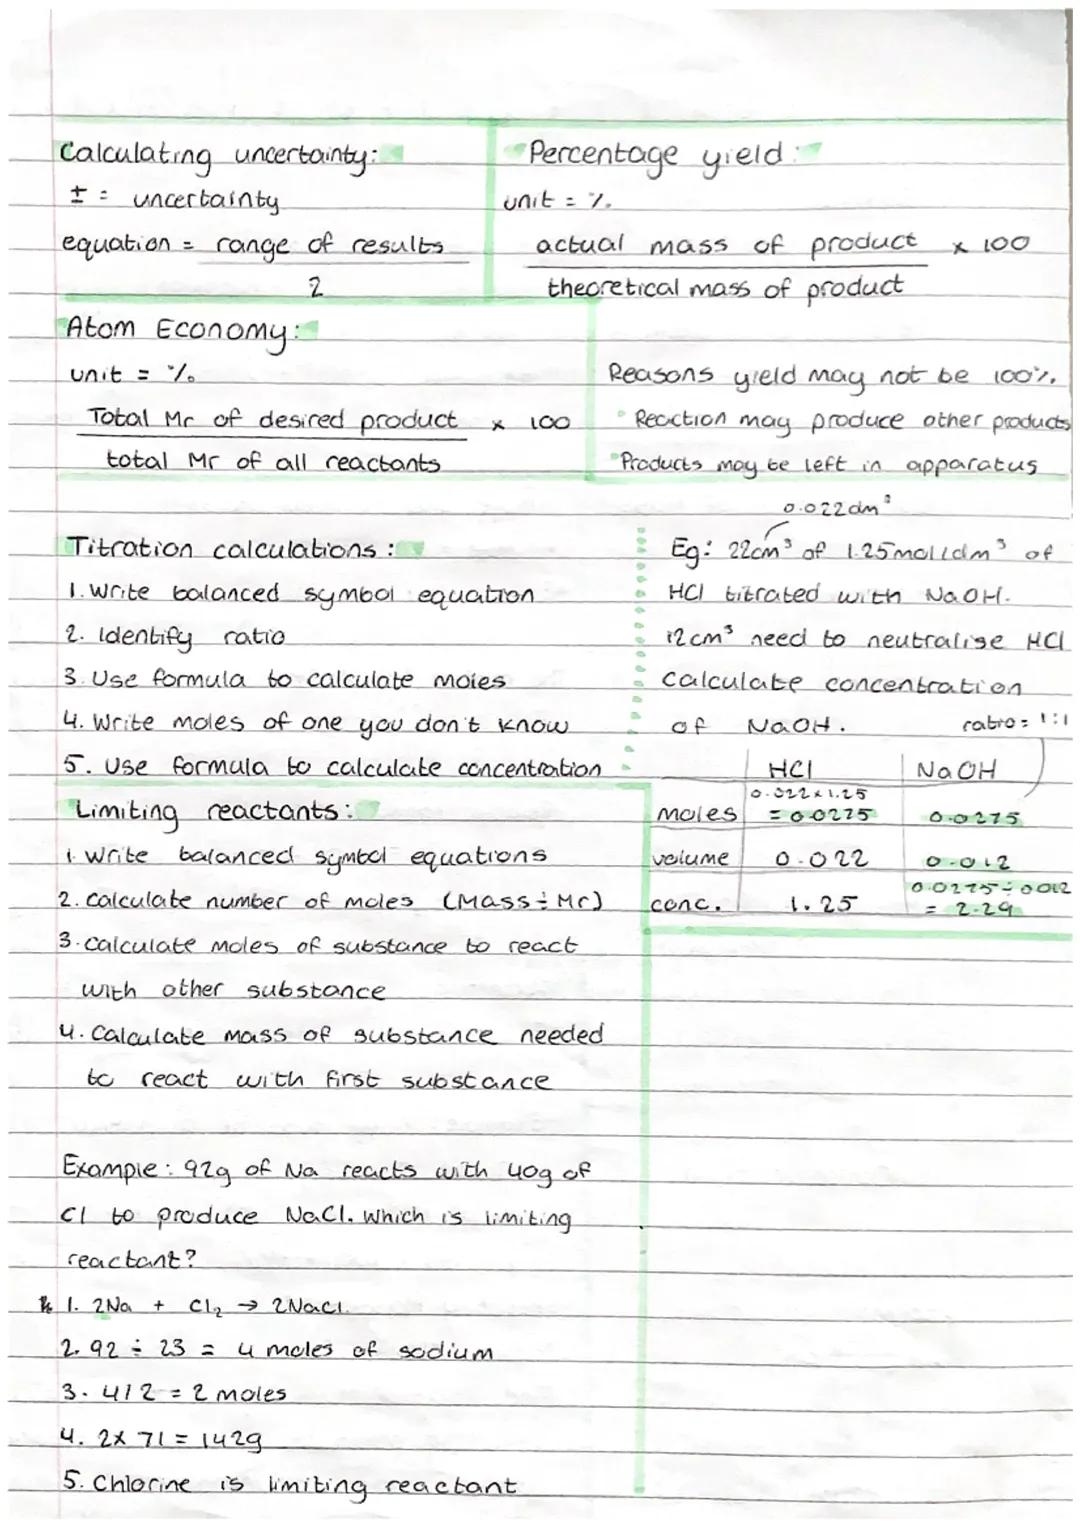 Calculating uncertainty:
± = uncertainty
equation = range of results
2
Percentage yield:
unit = %.
actual mass of product x 100
theoretical mass of product
Atom Economy:
unit = %
Total Mr of desired product x 100
total Mr of all reactants
Reasons yield may not be 100%.
• Reaction may produce other products
• Products may be left in apparatus
Titration calculations:
1. Write balanced symbol equation
2. Identify ratio
3. Use formula to calculate moles
4. Write moles of one you don't know
5. Use formula to calculate concentration
0.022dm³
Eg: 22cm³ of 1.25mol/dm³ of
HCl titrated with NaOH.
12cm³ need to neutralise HCl
Calculate concentration
of NaOH. ratio = 1:1
HCl NaOH
moles 0.022x1.25 = 0.0275 0.0275
volume 0.022 0.012
conc. 1.25 0.0275÷0.012 = 2.29
Limiting reactants:
1. Write balanced symbol equations
2. Calculate number of moles (Mass÷Mr)
3. Calculate moles of substance to react
with other substance
4. Calculate mass of substance needed
to react with first substance
Example: 92g of Na reacts with 40g of
Cl to produce NaCl. Which is limiting
reactant?
1. 2Na + Cl₂ → 2NaCl
2. 92 ÷ 23 = 4 moles of sodium
3. 4/2 = 2 moles
4. 2x 71 = 142g
5. Chlorine is limiting reactant